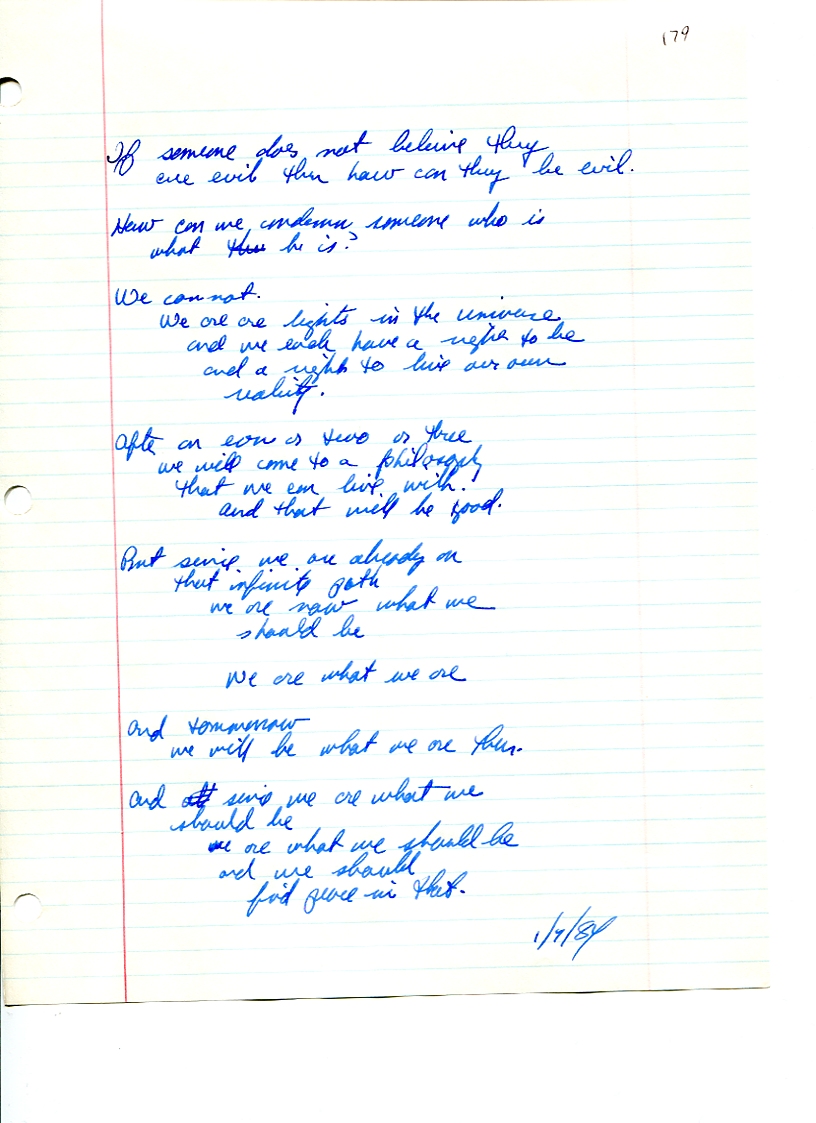 179
If someone does not believe they
are evil then how can they be evil.
How can we condemn someone who is
what he is?
We cannot.
We are are lights in the universe
and we each have a right to be
and a right to live our own
reality.
After an eon or two or three
we will come to a philosophy
that we can live with.
and that will be good.
But since we are already on
that infinite path
we are now what we
should be
We are what we are
and tommorrow
we will be what we are then.
and since we are what we
should be
we are what we should be
and we should
find peace in that.
1/7/84